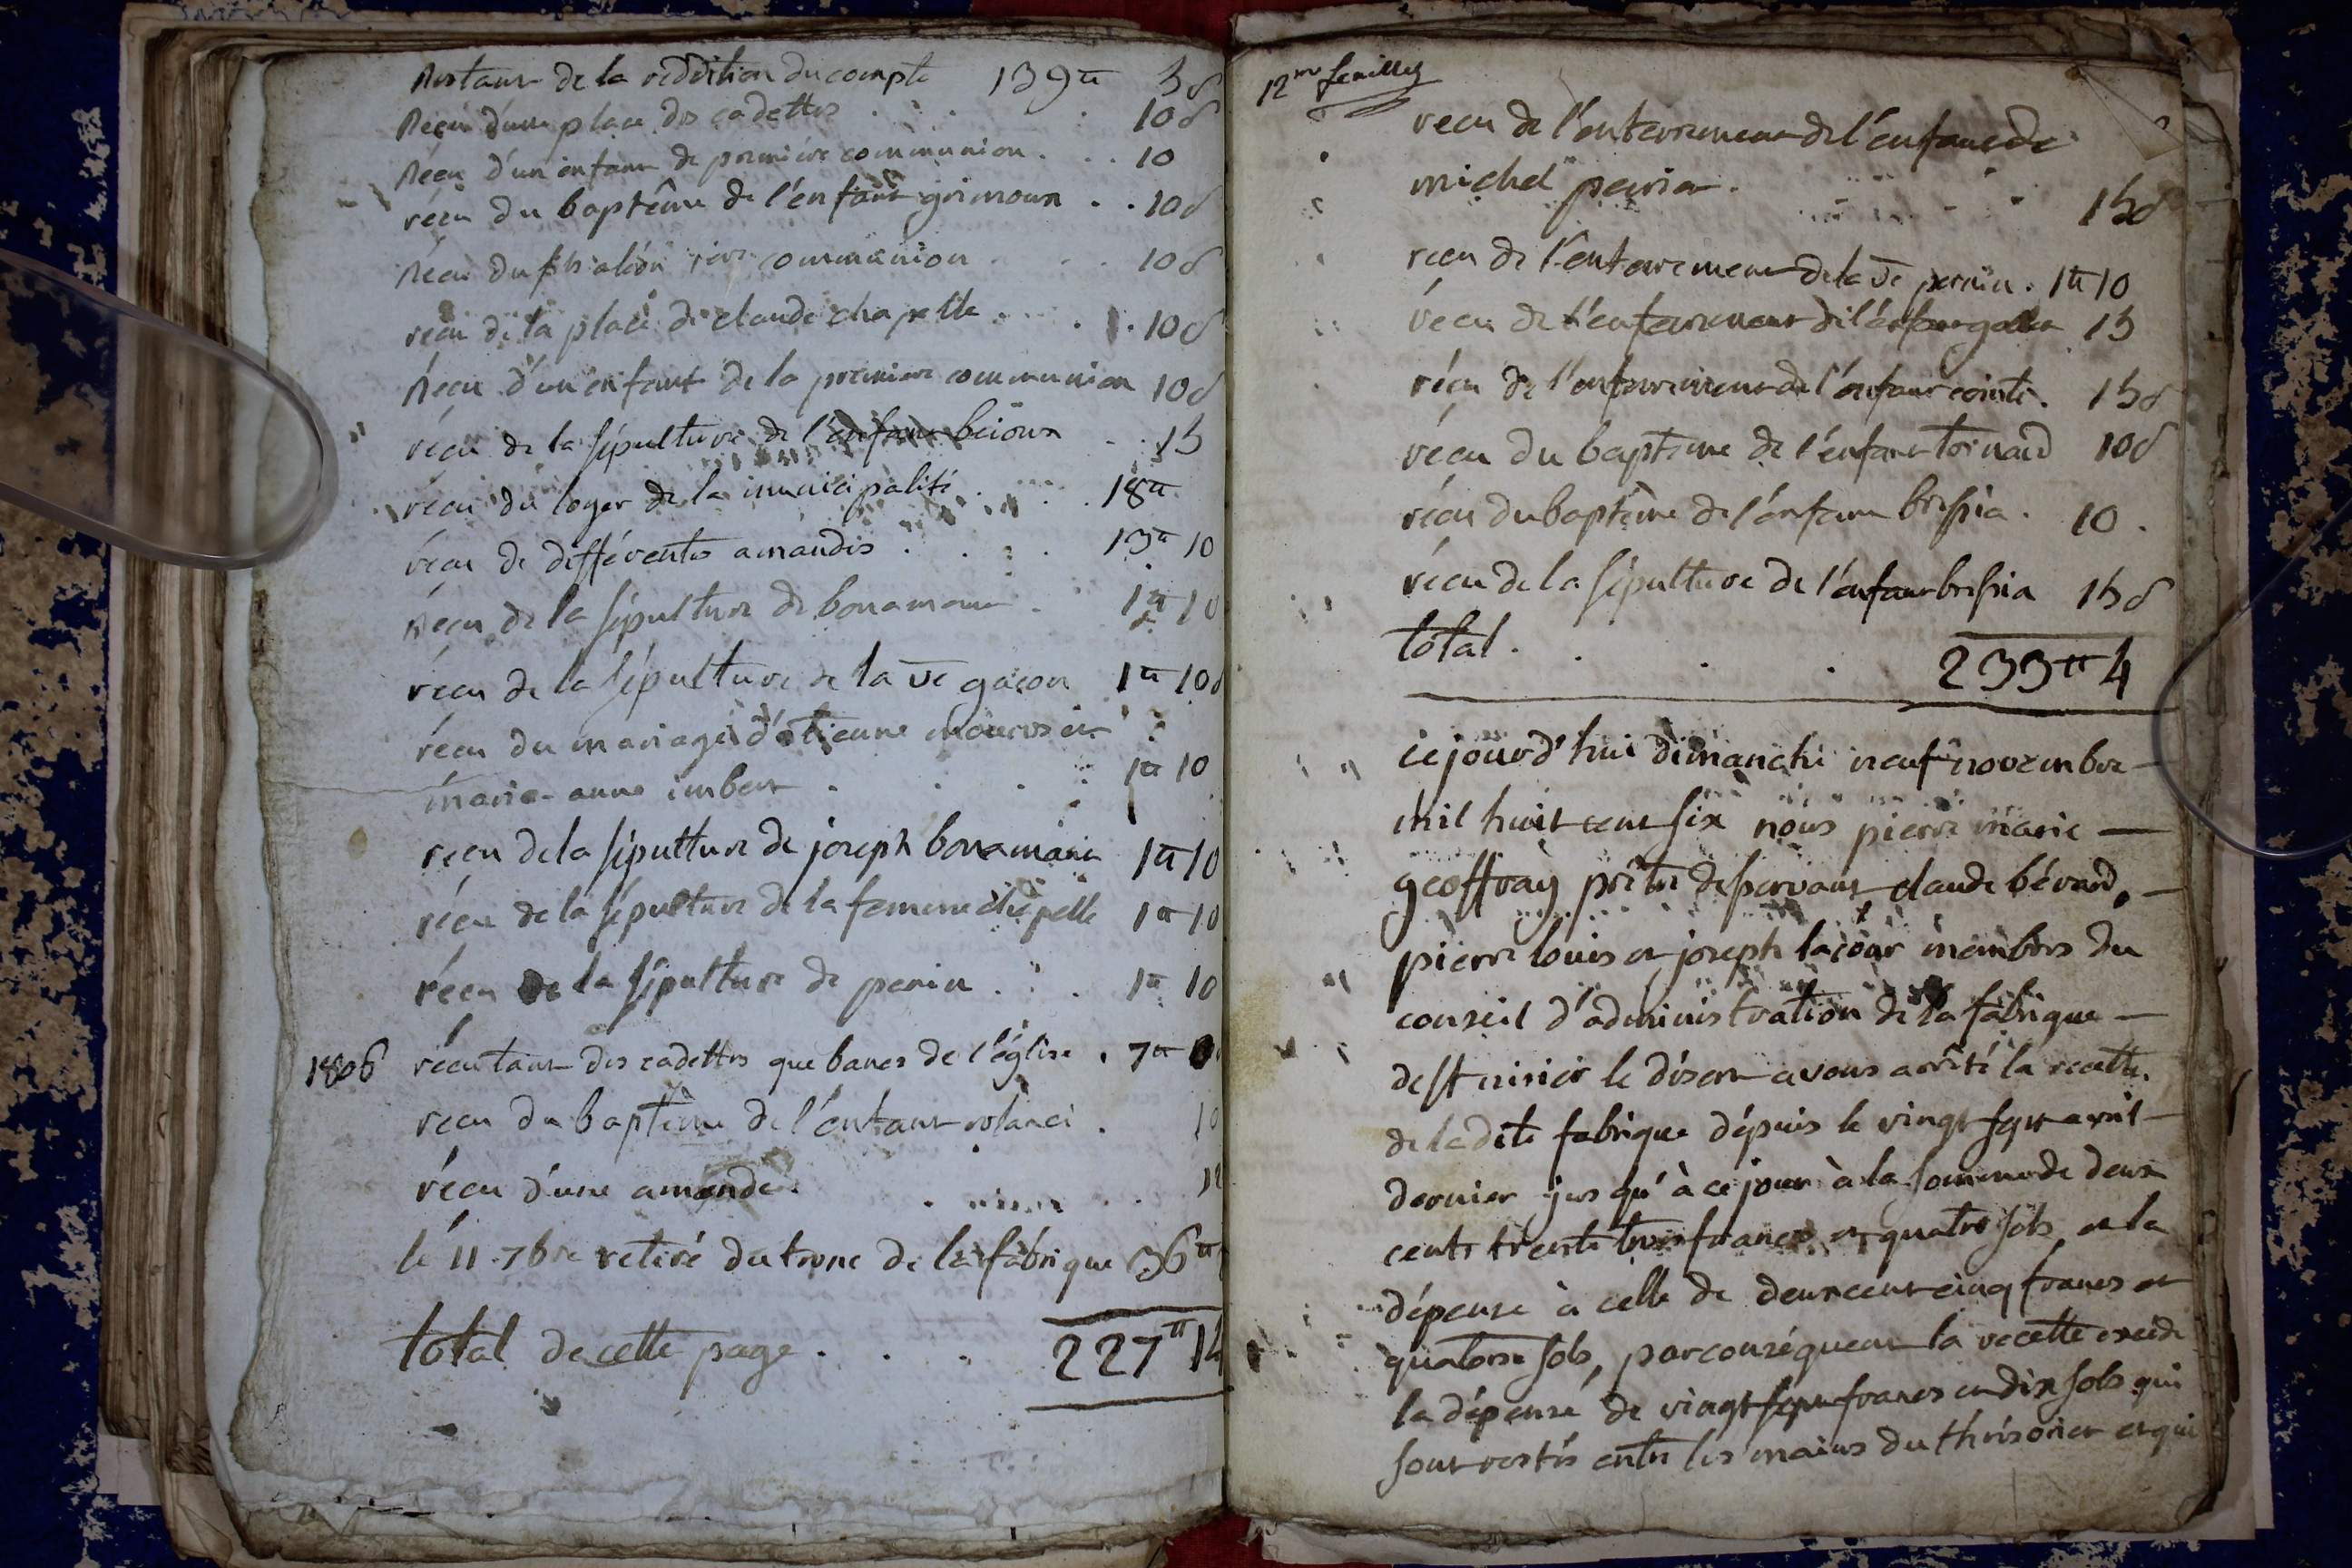 Restant de la reddition du compte 139tt 3s
Reçu d'une place des cadettes . . . . 10s
Reçu d'un enfant de première communion . . . 10
réçu du baptême de l'enfant grimoux . . 10s
Réçu du fils aléon 1ere communion . . . 10s
reçu de la place de claude chapelle . . . . 10s
Réçu d'un enfant de la premiere communion 10s
réçu de la sépulture de l'enfant . . 15
réçu du loyer de la municipalité . . . 18tt
réçu de différentes amandes . . . 13tt 10
Réçu de la sépulture de bonamour . 1tt 10
réçu de la sépulture de la ve gacon 1tt 10s
réçu du mariage d'étienne et
marie-anne imbert . . . . 1tt 10
reçu de la sépulture de joseph 1tt 10
réçu de la sépulture de la femme chapelle 1tt 10
réçu de la sépulture de perin . . . 1tt 10
1806 réçu tant des cadettes que bancs de l'église . 7tt
recu du baptême de l'enfant . 10
réçu d'une amende . . . .
le 11 7bre retiré du tronc de la fabrique 36tt
total de cette page . . . 227tt 14
12me feuillet
recu de l'enterrement de l'enfant de
michel perier . . . . 15s
recu de l'enterrement de la ve perrin . 1tt 10
réçu de l'enterrement de l'enfant 15
réçu de l'enterrement de l'enfant cointe . 15s
réçu du baptême de l'enfant tornard 10s
réçu du baptême de l'enfant bressia . 10 .
réçu de la sépulture de l'enfant bressia 15s
total . . . . 233tt 4
cejourd'hui dimanche neuf novembre
mil huit cent six nous pierre marie
geoffray prêtre desservant claude bérard,
pierre louis et joseph lacour membres du
conseil d'administration de la fabrique
de st nizier le désert avons arrêté la recette
de ladite fabrique dépuis le vingt sept avril
dernier jusqu'à ce jour à la somme de deux
cents trente trois francs et quatre sols, et la
dépense à celle de deux cent cinq francs et
quatorze sols, par conséquent la recette excede
la dépense de vingt sept francs et dix sols qui
sont restés entre les mains du thrésorier et qui